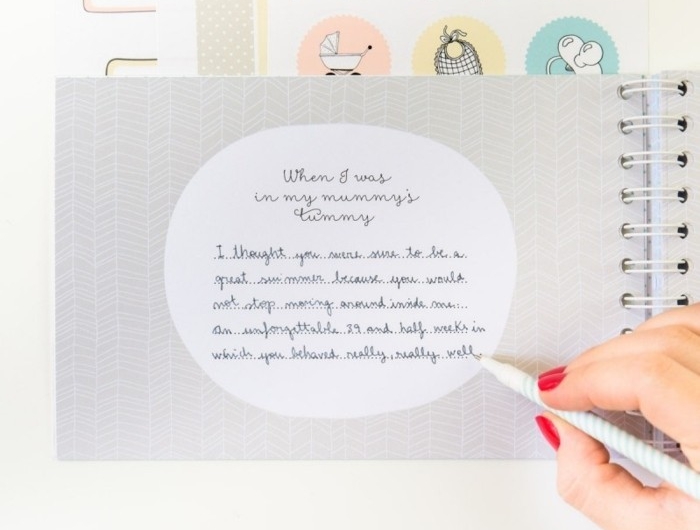 When I was
in my mummy's
tummy
I thought you were sure to be a
great swimmer because you would
not stop moving around inside me...
An unforgettable 39 and half weeks in
which you behaved really, really well.